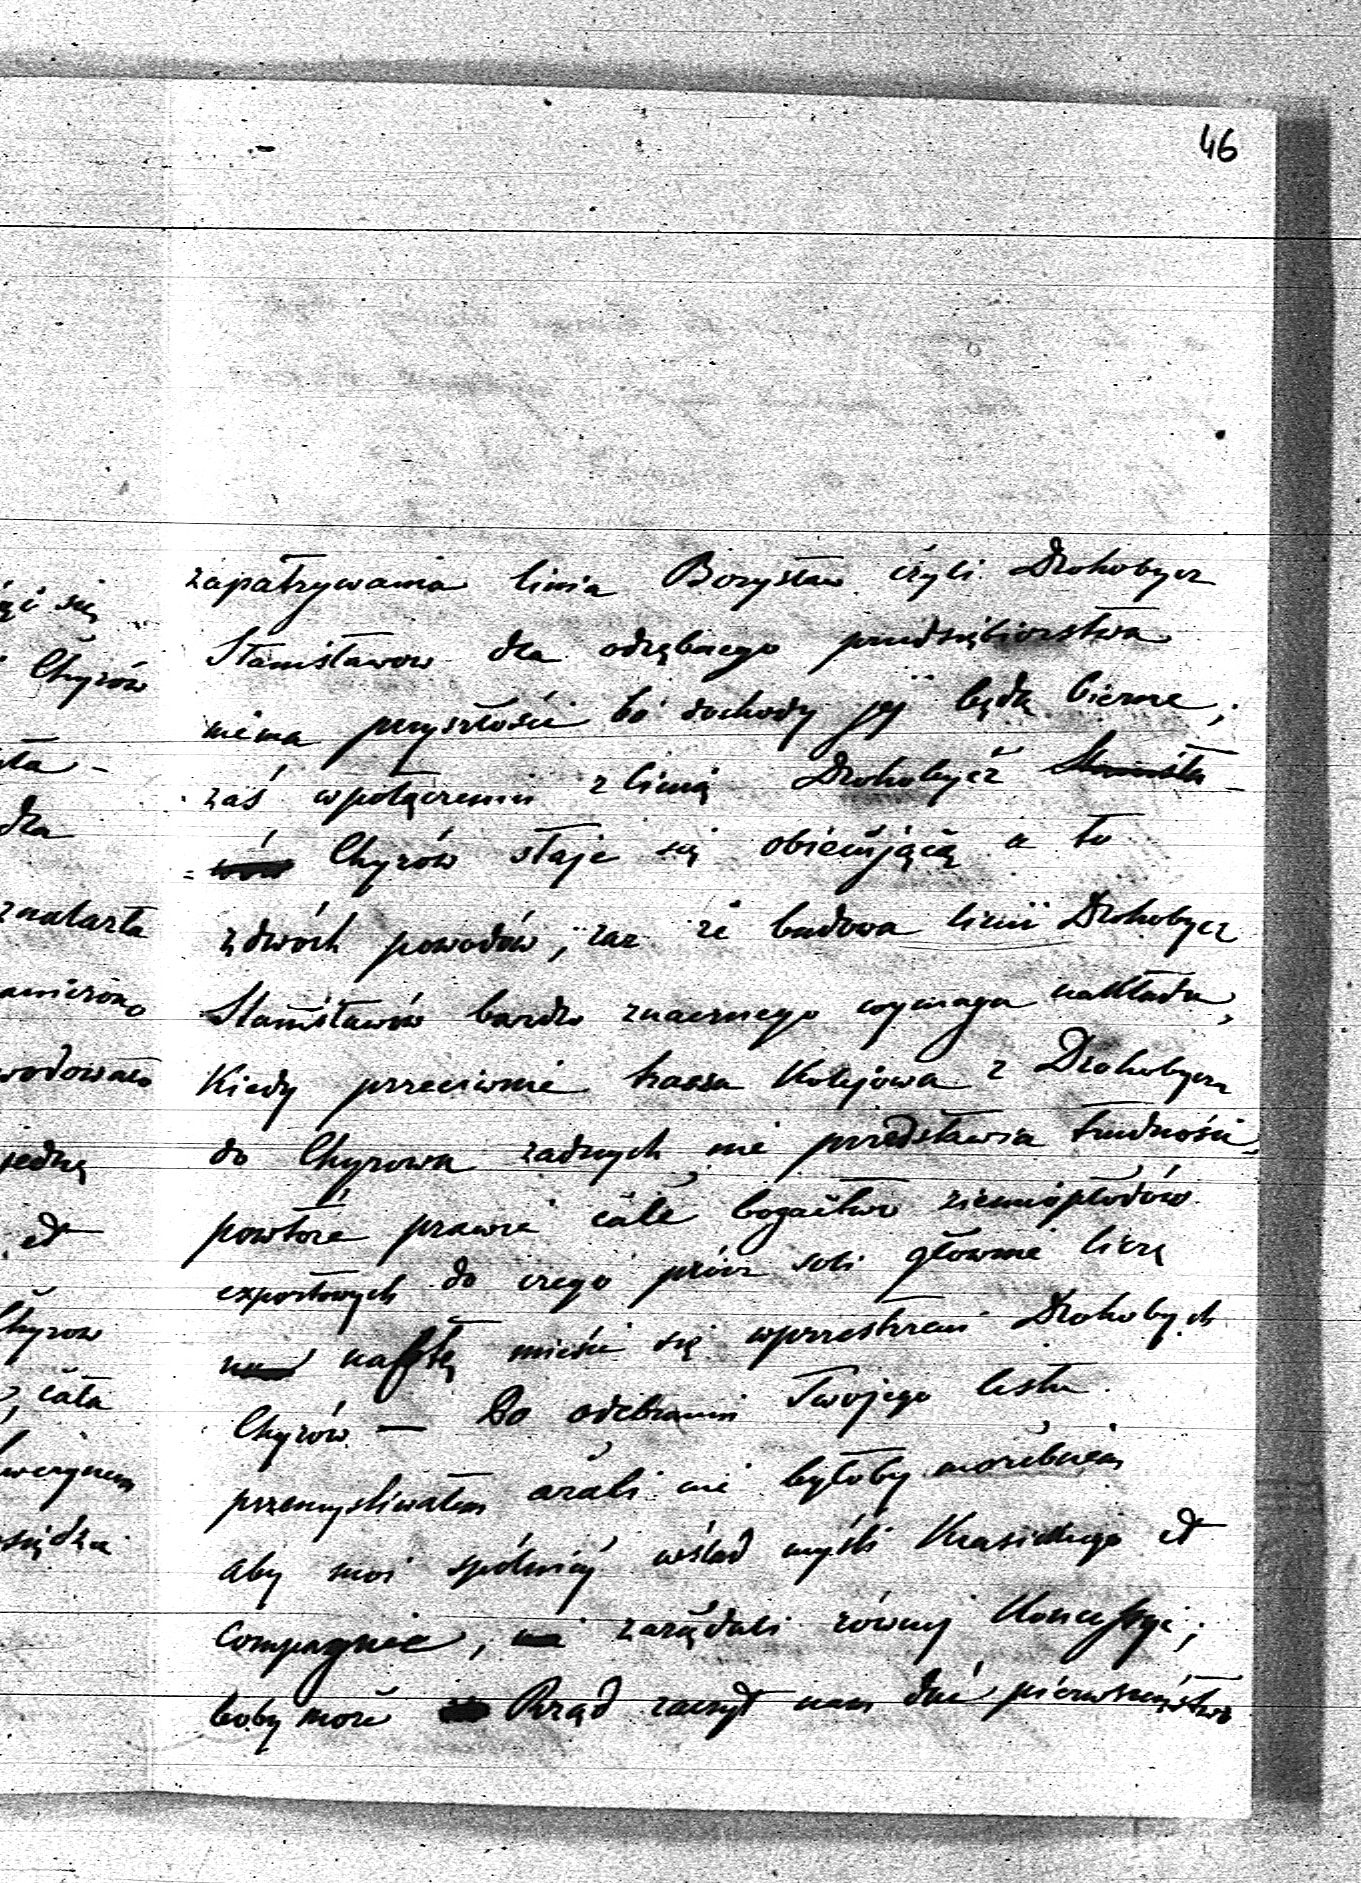 46
zapatrywania linia Borysław czyli Drohobycz
Stanisławow dla odrębnego przedsiębiorstwa
niema przyszłości bo dochody jej będą bierne;
zaś wpołączeniu z linią Drohobycz Stanisła
= wów Chyrów staje się obiecującą a to
z dwóch powodów, raz że budowa linii Drohobycz
Stanisławów bardzo znacznego wymaga nakładu,
Kiedy przeciwnie trassa Kolejowa z Drohobycza
do Chyrowa żadnych nie przedstawia trudności
powtóre prawie całe bogactwo ziemiopłodów
exportowych do czego prócz soli głównie liczę
naftę mieści się wprzestrzeni Drohobych
Chyrów — Po odebraniu Twojego listu
przemyśliwałem azali nie byłoby możebnem
aby moi spólnicy wślad myśli Krasickiego et
compagnie, zażądali równej Koncessyi;
boby może Rząd raczył nam dać pierwszeństwo
się
Chyrów
ła -
dla
znalazła
jedną
et
Chyrow
, cała